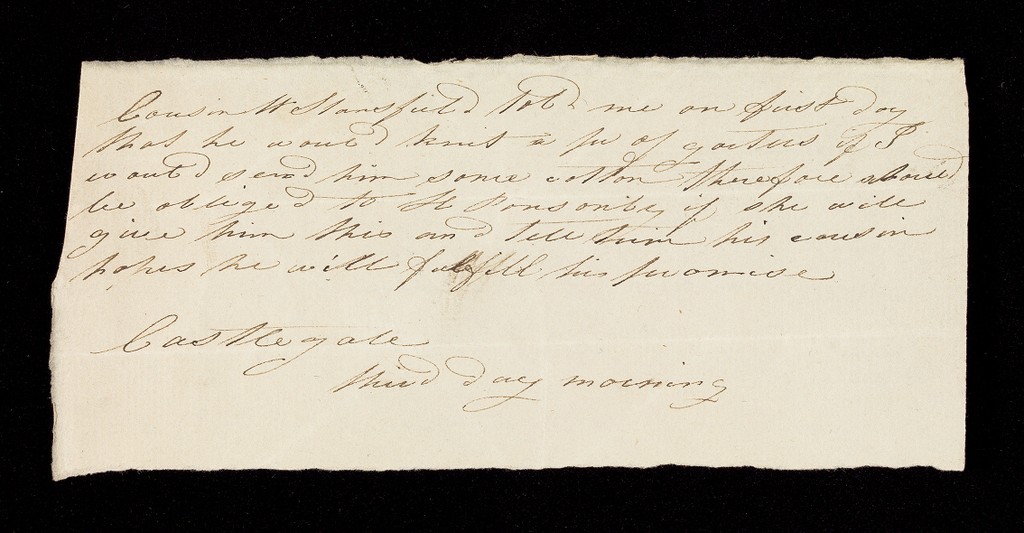 Cousin W Stansfield told me on first day
that he would knit a pr of garters if I
would send him some cotton therefore should
be obliged to H Ponsonby if she will
give him this and tell him his cousin
hopes he will fulfill his promise
Castlegate
third day morning